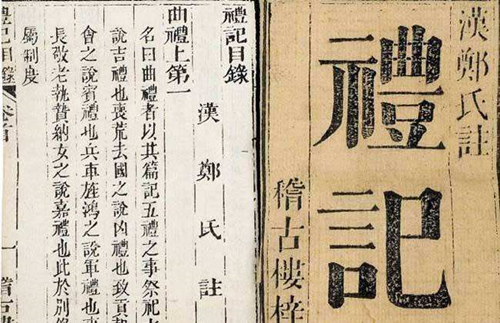 漢鄭氏註
禮記
稽古樓梓
禮記目錄
漢鄭氏註
曲禮上第一
名曰曲禮者以其篇記五禮之事祭祀
說吉禮也喪荒去國之說凶禮也致貢
會之說賓禮也兵車旌鴻之說軍禮也
長敬老執贄納女之說嘉禮也此於別
屬制度
禮記目錄 卷首 一